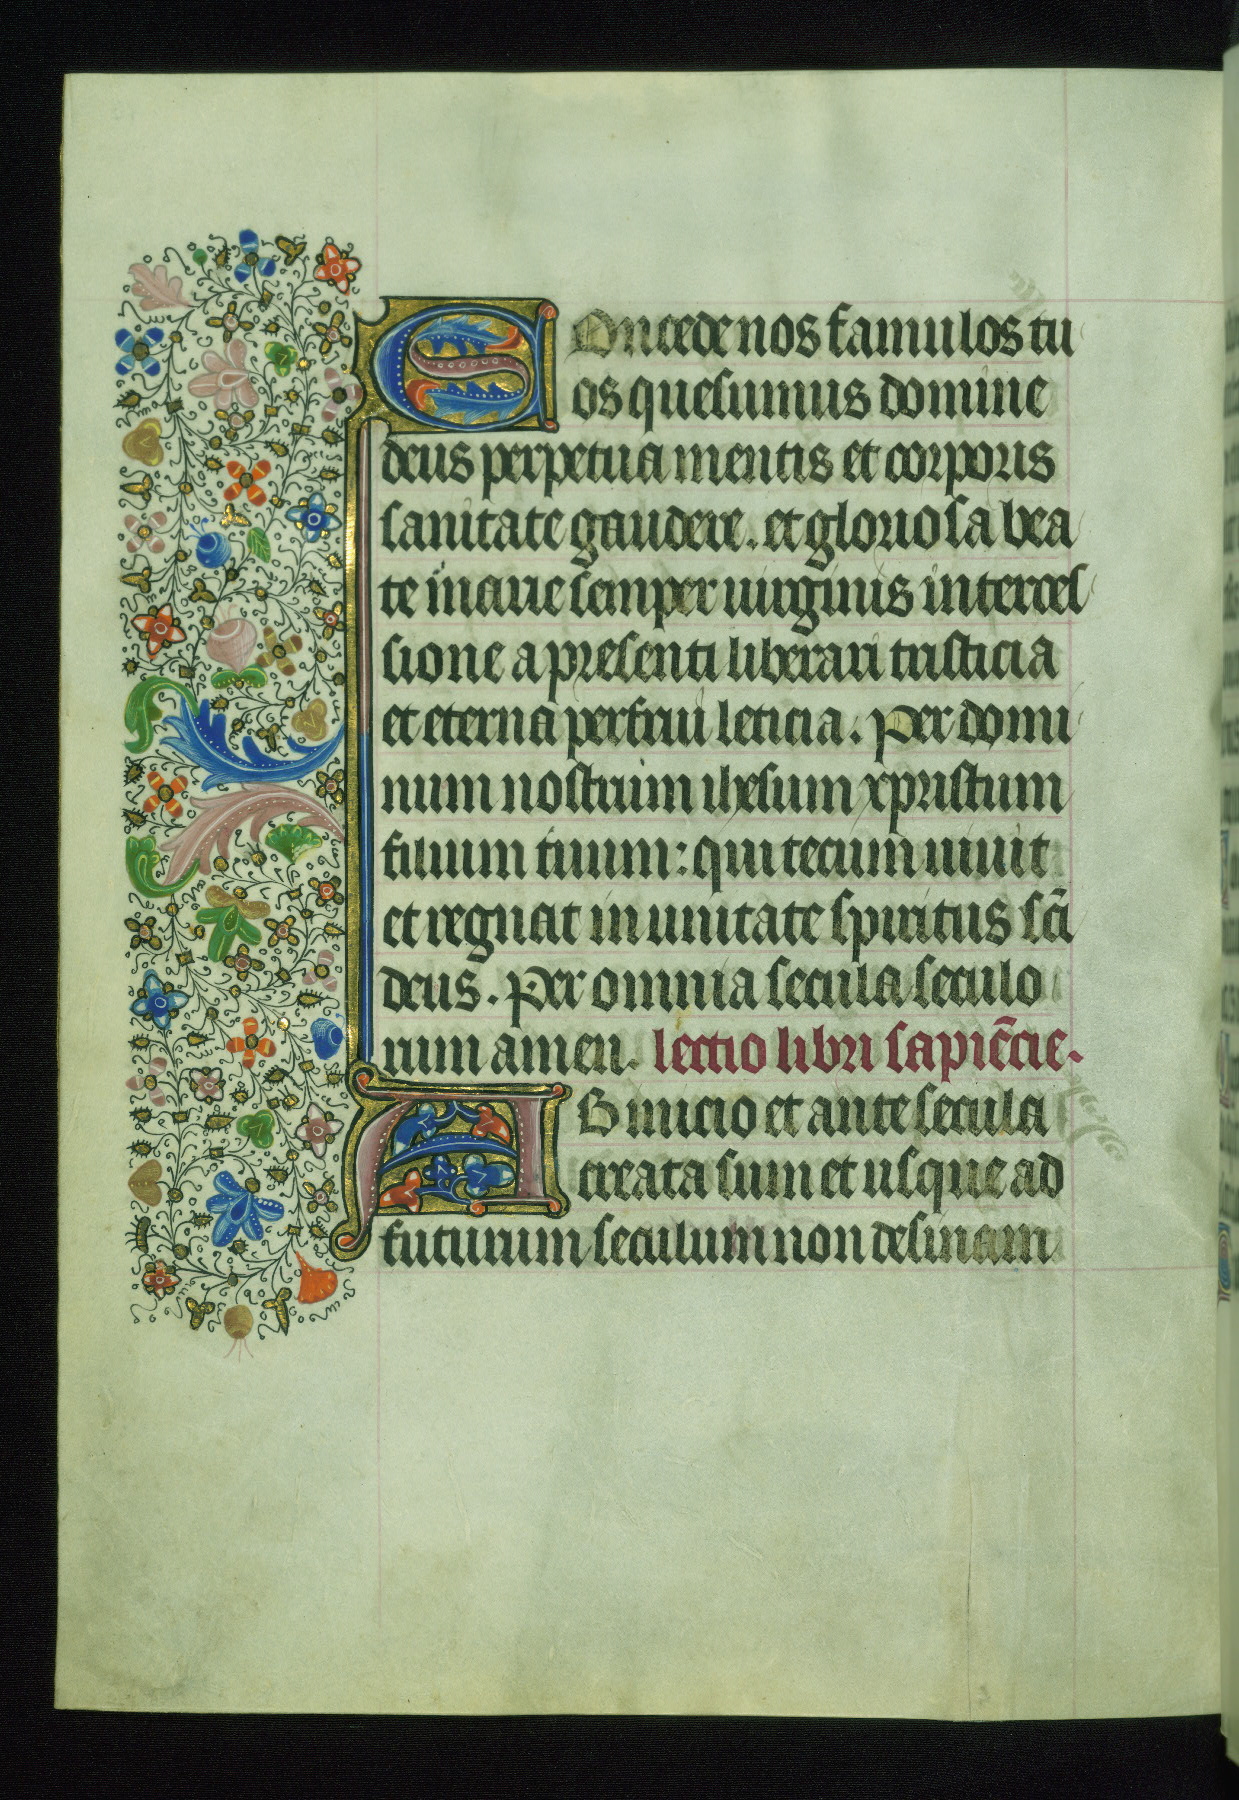 Concede nos famulos tu
os quesumus domine
deus perpetua mentis et corporis
sanitate gaudere. et gloriosa bea
te marie semper uirginis interces
sione a presenti liberari tristicia
et eterna perfrui leticia. Per domi
num nostrum ihesum xpristum
filium tuum: qui tecum uiuit
et regnat in unitate spiritus sc̄i
deus. Per omnia secula seculo
rum amen. lectio libri sapiēcie.
AB inicio et ante secula
creata sum et usque ad
futurum seculum non desinam